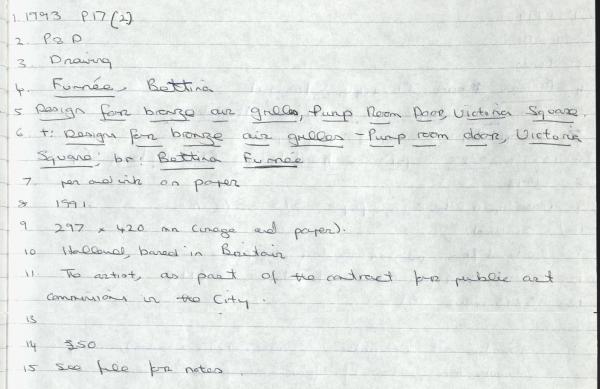 1. 1993 P17(2)
2. P&D
3. Drawing
4. Furnée, Bettina
5 Design for bronze air grilles, Pump Room Door, Victoria Square.
6 t: Design for bronze air grilles - Pump room door, Victoria
Square; br: Bettina Furnée
7 pen and ink on paper
8 1991.
9 297 x 420 mm (image and paper).
10 Holland, based in Britain
11 The artist, as part of the contract for public art
commissions in the City.
13
14 £50
15 see file for notes.